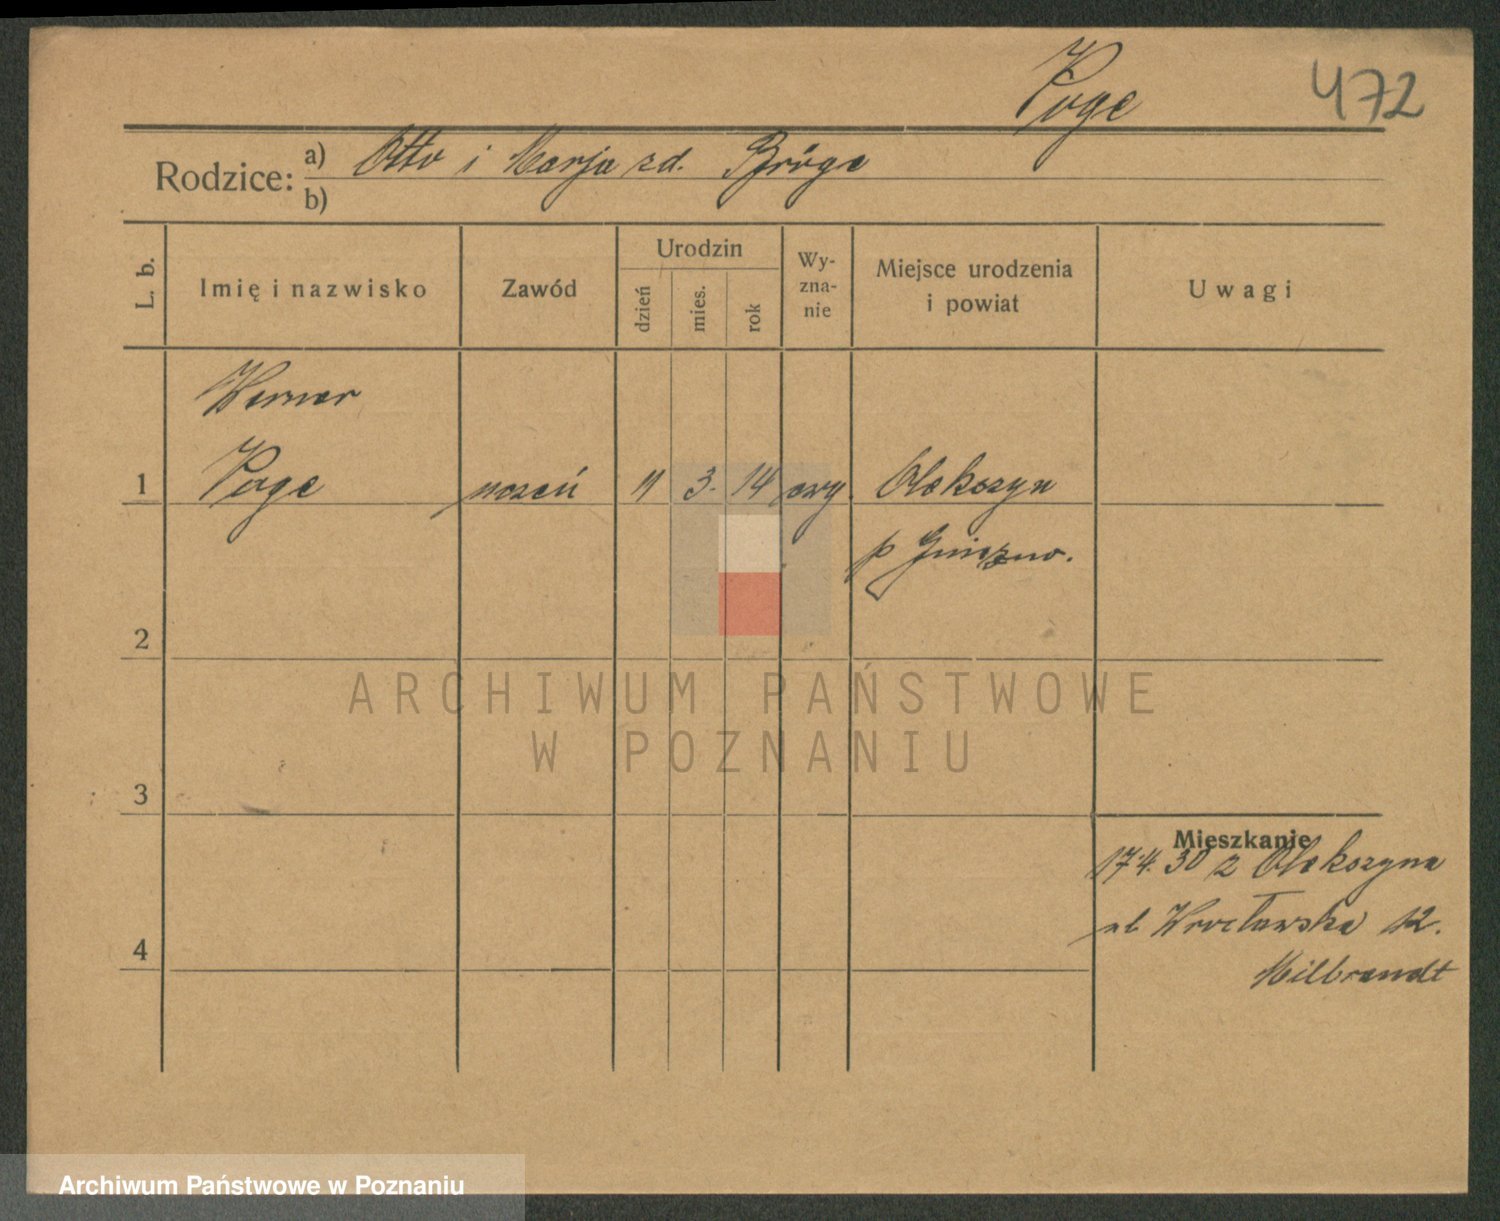 Poge
472
Rodzice:
a) Otto i Marja zd. Bröge
b)
L. b.
Imię i nazwisko
Zawód
Urodzin
dzień
mies.
rok
Wy-
zna-
nie
Miejsce urodzenia
i powiat
Uwagi
Werner
1 Poge uczeń 11 3. 14 ewg. Olekszyn
p Gniezno.
2
ARCHIWUM PAŃSTWOWE
W POZNANIU
3
Mieszkanie
17.4.30 z Olekszyna
ul Wrocławska 12.
Milbrandt
4
Archiwum Państwowe w Poznaniu